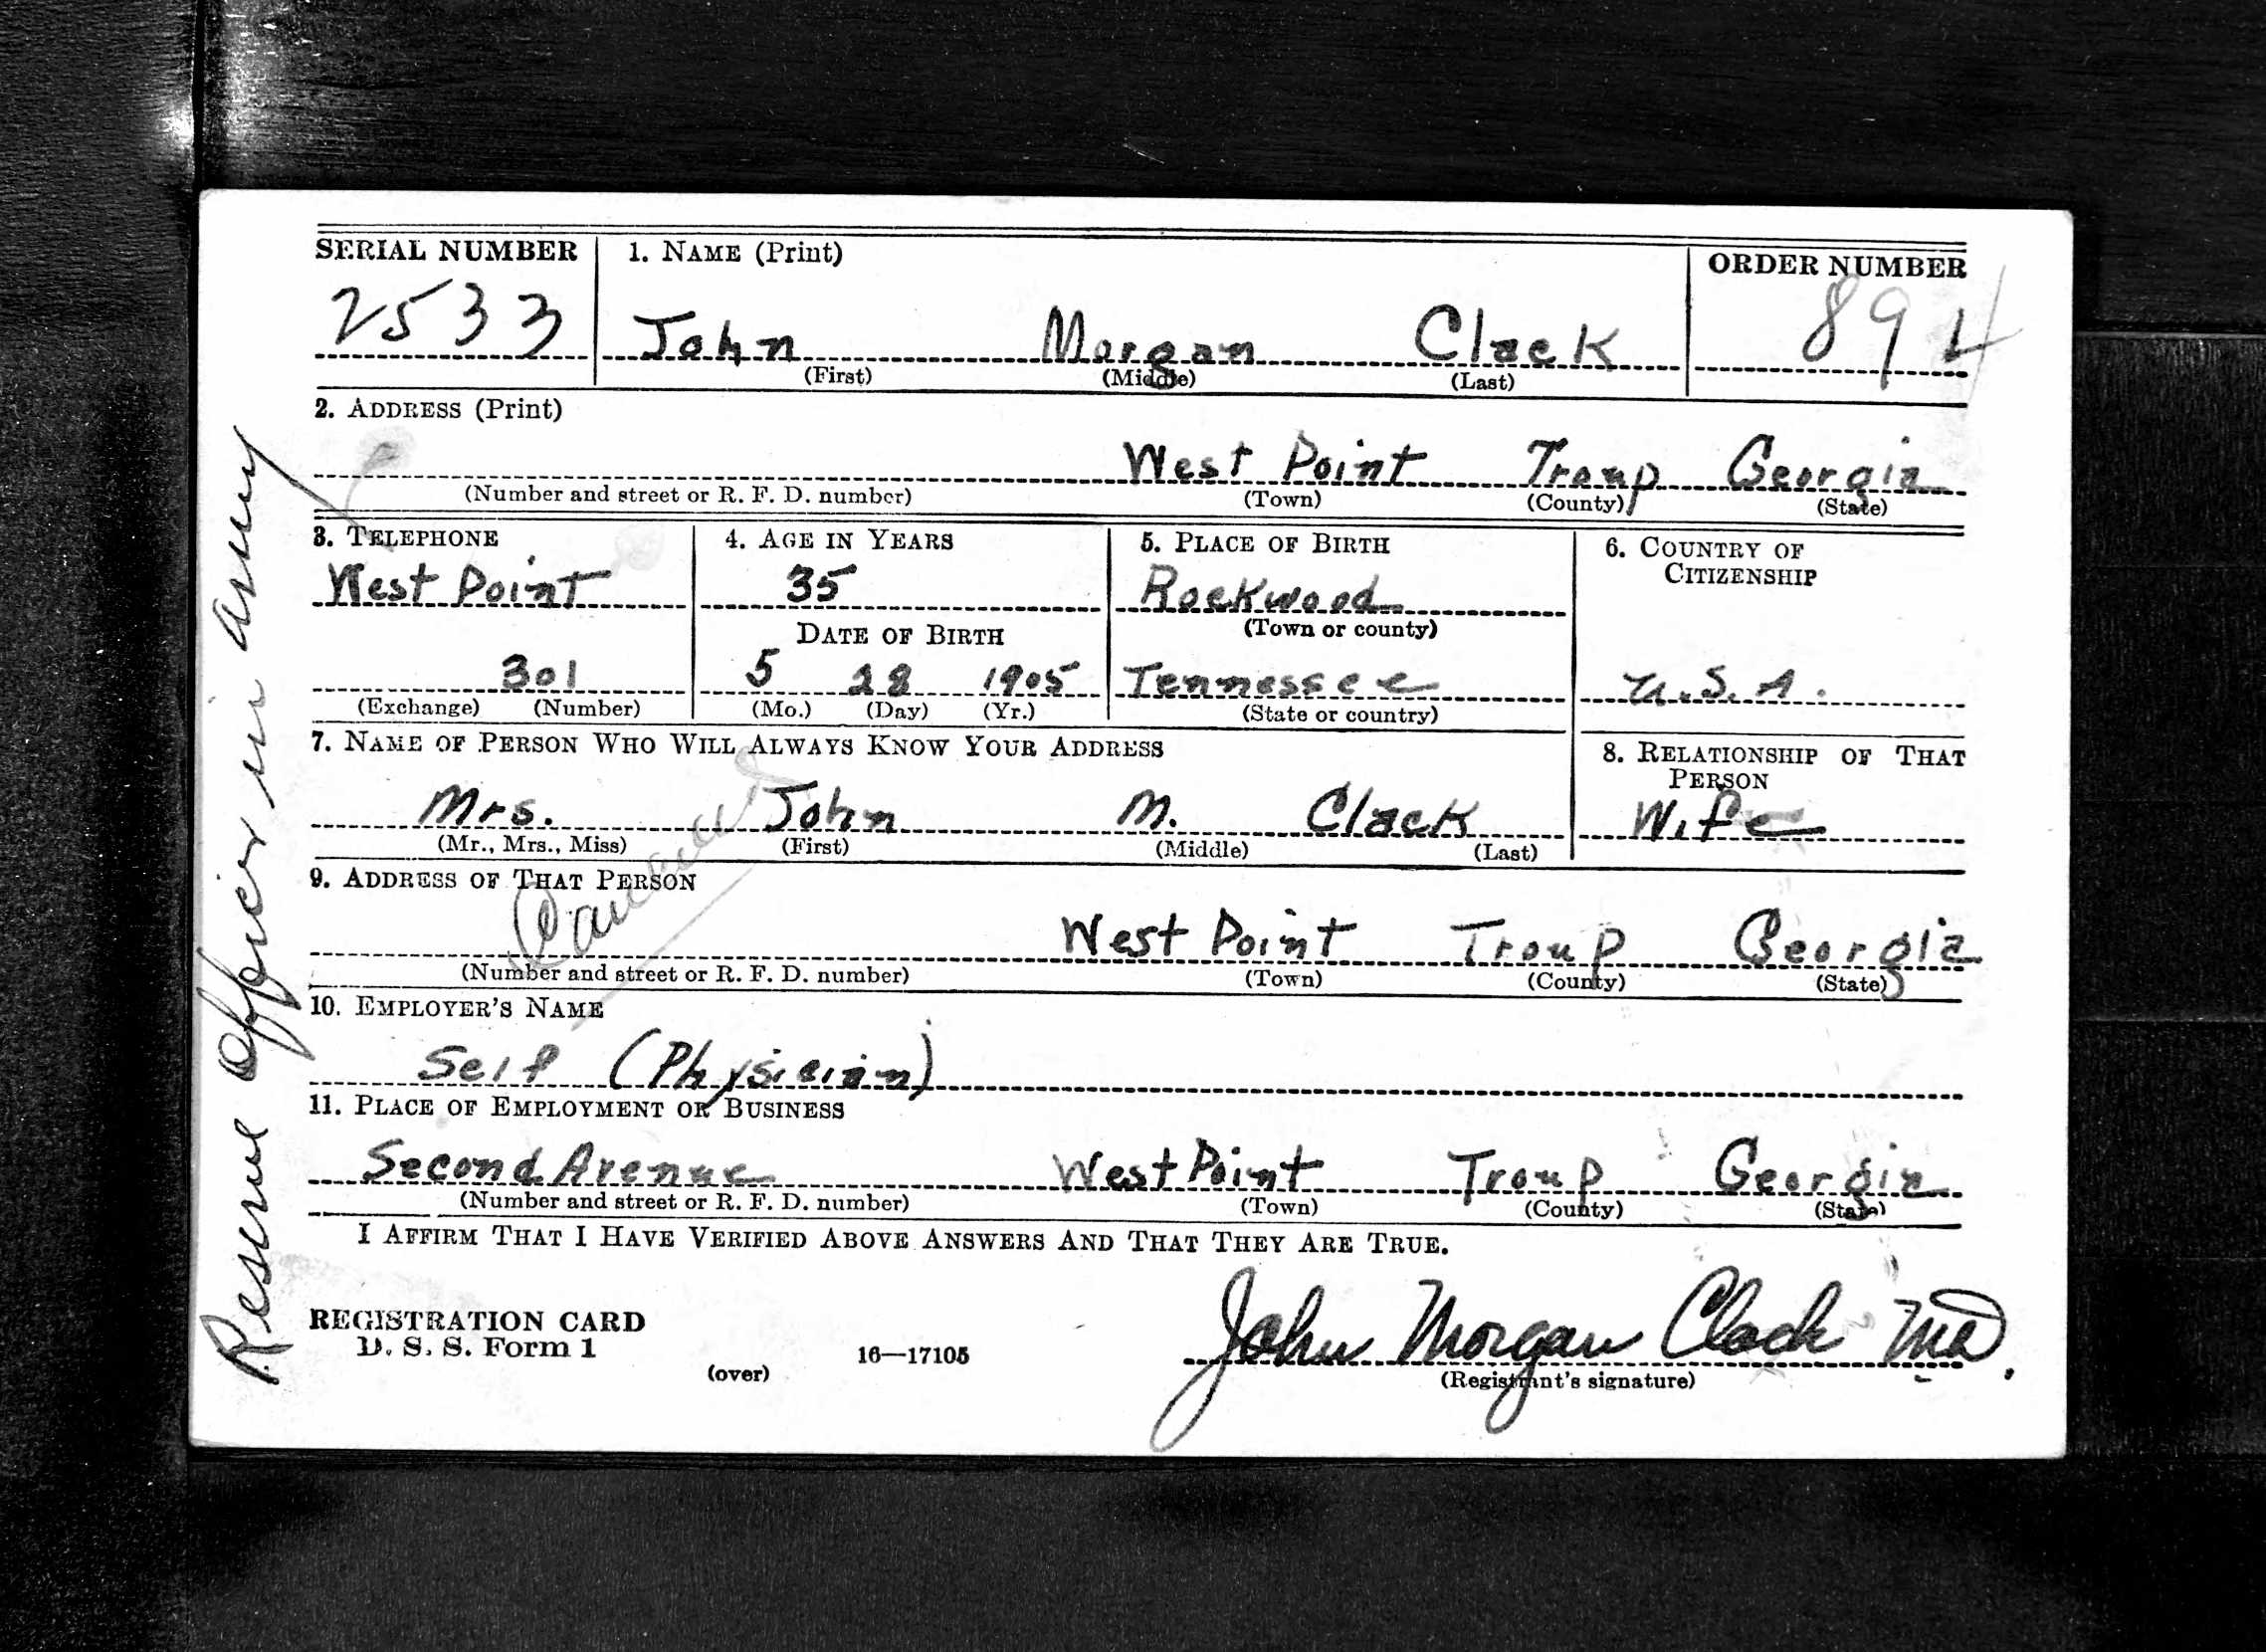 SERIAL NUMBER
2533
1. NAME (Print)
John Morgan Clack
(First) (Middle) (Last)
ORDER NUMBER
894
2. ADDRESS (Print)
West Point Troup Georgia
(Number and street or R. F. D. number) (Town) (County) (State)
3. TELEPHONE
West Point
301
(Exchange) (Number)
4. AGE IN YEARS
35
DATE OF BIRTH
5 28 1905
(Mo.) (Day) (Yr.)
5. PLACE OF BIRTH
Rockwood
(Town or county)
Tennessee
(State or country)
6. COUNTRY OF
CITIZENSHIP
U.S.A.
7. NAME OF PERSON WHO WILL ALWAYS KNOW YOUR ADDRESS
Mrs. John M. Clack
(Mr., Mrs., Miss) (First) (Middle) (Last)
8. RELATIONSHIP OF THAT
PERSON
Wife
9. ADDRESS OF THAT PERSON
West Point Troup Georgia
(Number and street or R. F. D. number) (Town) (County) (State)
10. EMPLOYER'S NAME
Self (Physician)
11. PLACE OF EMPLOYMENT OR BUSINESS
Second Avenue West Point Troup Georgia
(Number and street or R. F. D. number) (Town) (County) (State)
I AFFIRM THAT I HAVE VERIFIED ABOVE ANSWERS AND THAT THEY ARE TRUE.
REGISTRATION CARD
D. S. S. Form 1
(over)
16—17105
John Morgan Clack MD.
(Registrant's signature)
Reserve Officer in Army